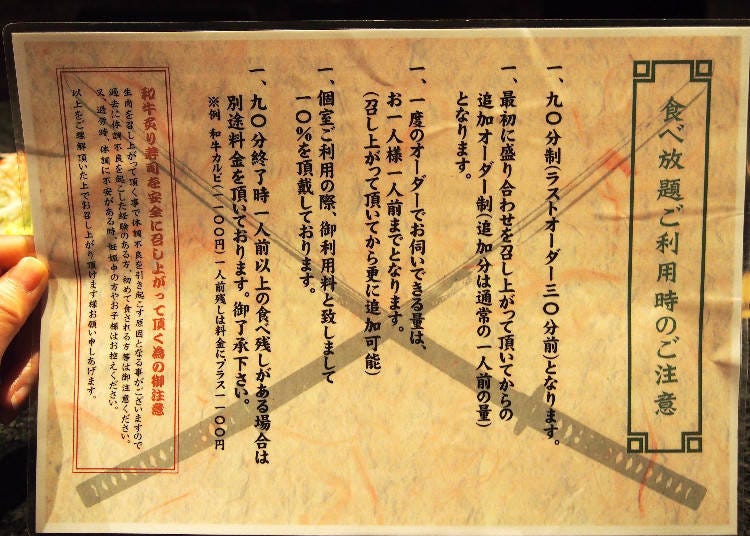 食べ放題ご利用時のご注意
一、九〇分制(ラストオーダー三〇分前)となります。
一、最初に盛り合わせを召し上がって頂いてからの
追加オーダー制(追加分は通常の一人前の量)
となります。
一、一度のオーダーでお伺いできる量は、
お一人様一人前までとなります。
(召し上がって頂いてから更に追加可能)
一、個室ご利用の際、御利用料と致しまして
一〇%を頂戴しております。
一、九〇分終了時一人前以上の食べ残しがある場合は
別途料金を頂いております。御了承下さい。
※例 和牛カルビ(一一〇〇円)一人前残しは料金にプラス一一〇〇円
和牛炙り寿司を安全に召し上がって頂く為の御注意
生肉を召し上がって頂く事で体調不良を引き起こす原因となる事がございますので
過去に体調不良を起こした経験のある方、初めて食される方等は御注意ください。
又、過労時、体調に不安がある時、妊娠中の方やお子様はお控えください。
以上をご理解頂いた上でお召し上がり頂けます様お願い申しあげます。